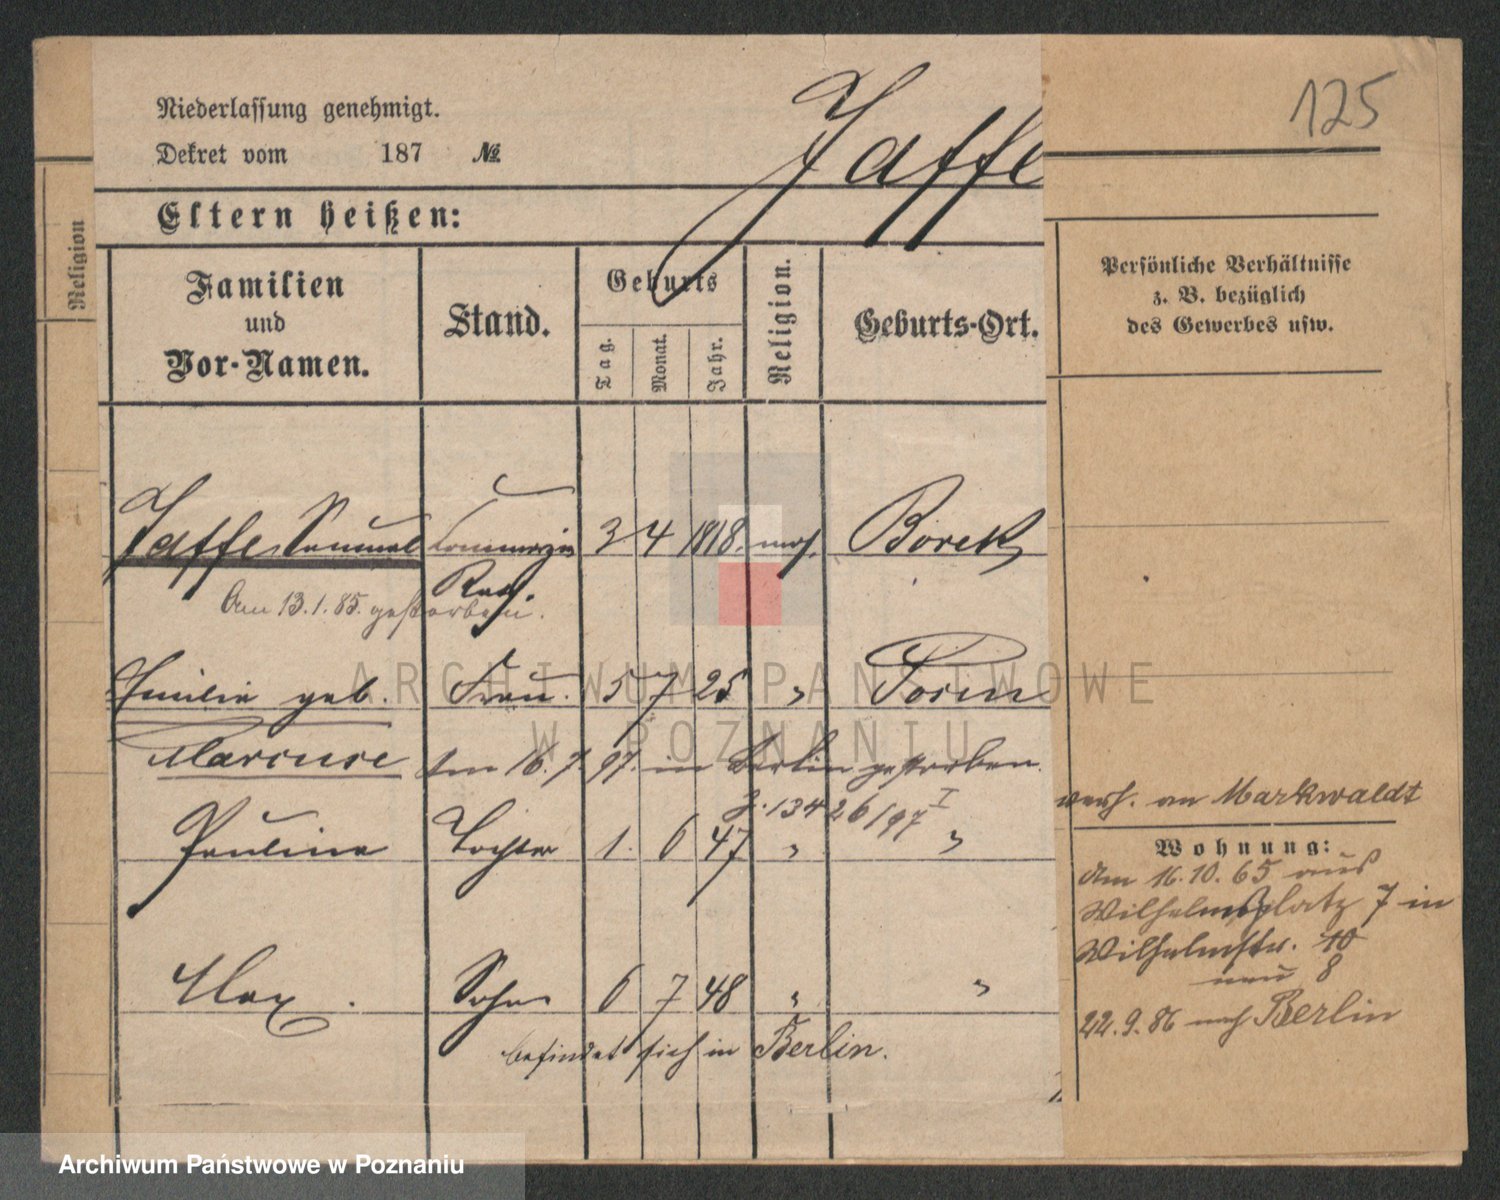 125
Niederlassung genehmigt.
Dekret vom 187 №
Jaffe
Eltern heißen:
Religion
Familien und Vor-Namen.
Stand.
Geburts
Tag.
Monat.
Jahr.
Religion.
Geburts-Ort.
Persönliche Verhältnisse
z. B. bezüglich
des Gewerbes usw.
Jaffe, Samuel Commerzien 3 4 1818. mos. Borek
Rath.
Am 13.1.85. gestorben.
Emilie geb. Frau. 5 7 25 " Posen
Marcuse Am 16.7.97. in Berlin gestorben.
J. 13426/97 I
verh. an Markwaldt
Pauline Tochter 1. 6 47 " "
Wohnung:
Am 16.10.65 aus
Wilhelmsplatz 7 in
Wilhelmstr. 10
neu 8
22.9.86 nach Berlin
Max. Sohn 6 7 48 " "
befindet sich in Berlin.
ARCHIWUM PAŃSTWOWE
W POZNANIU
Archiwum Państwowe w Poznaniu